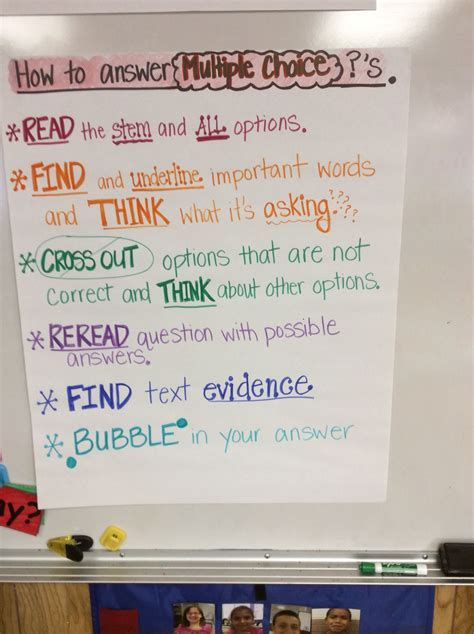 How to answer {Multiple Choice} ?'s.
*READ the stem and ALL options.
*FIND and underline important words
and THINK what it's asking????
*CROSS OUT options that are not
correct and THINK about other options.
*REREAD question with possible
answers.
*FIND text evidence
*BUBBLE in your answer
y?
EXPO